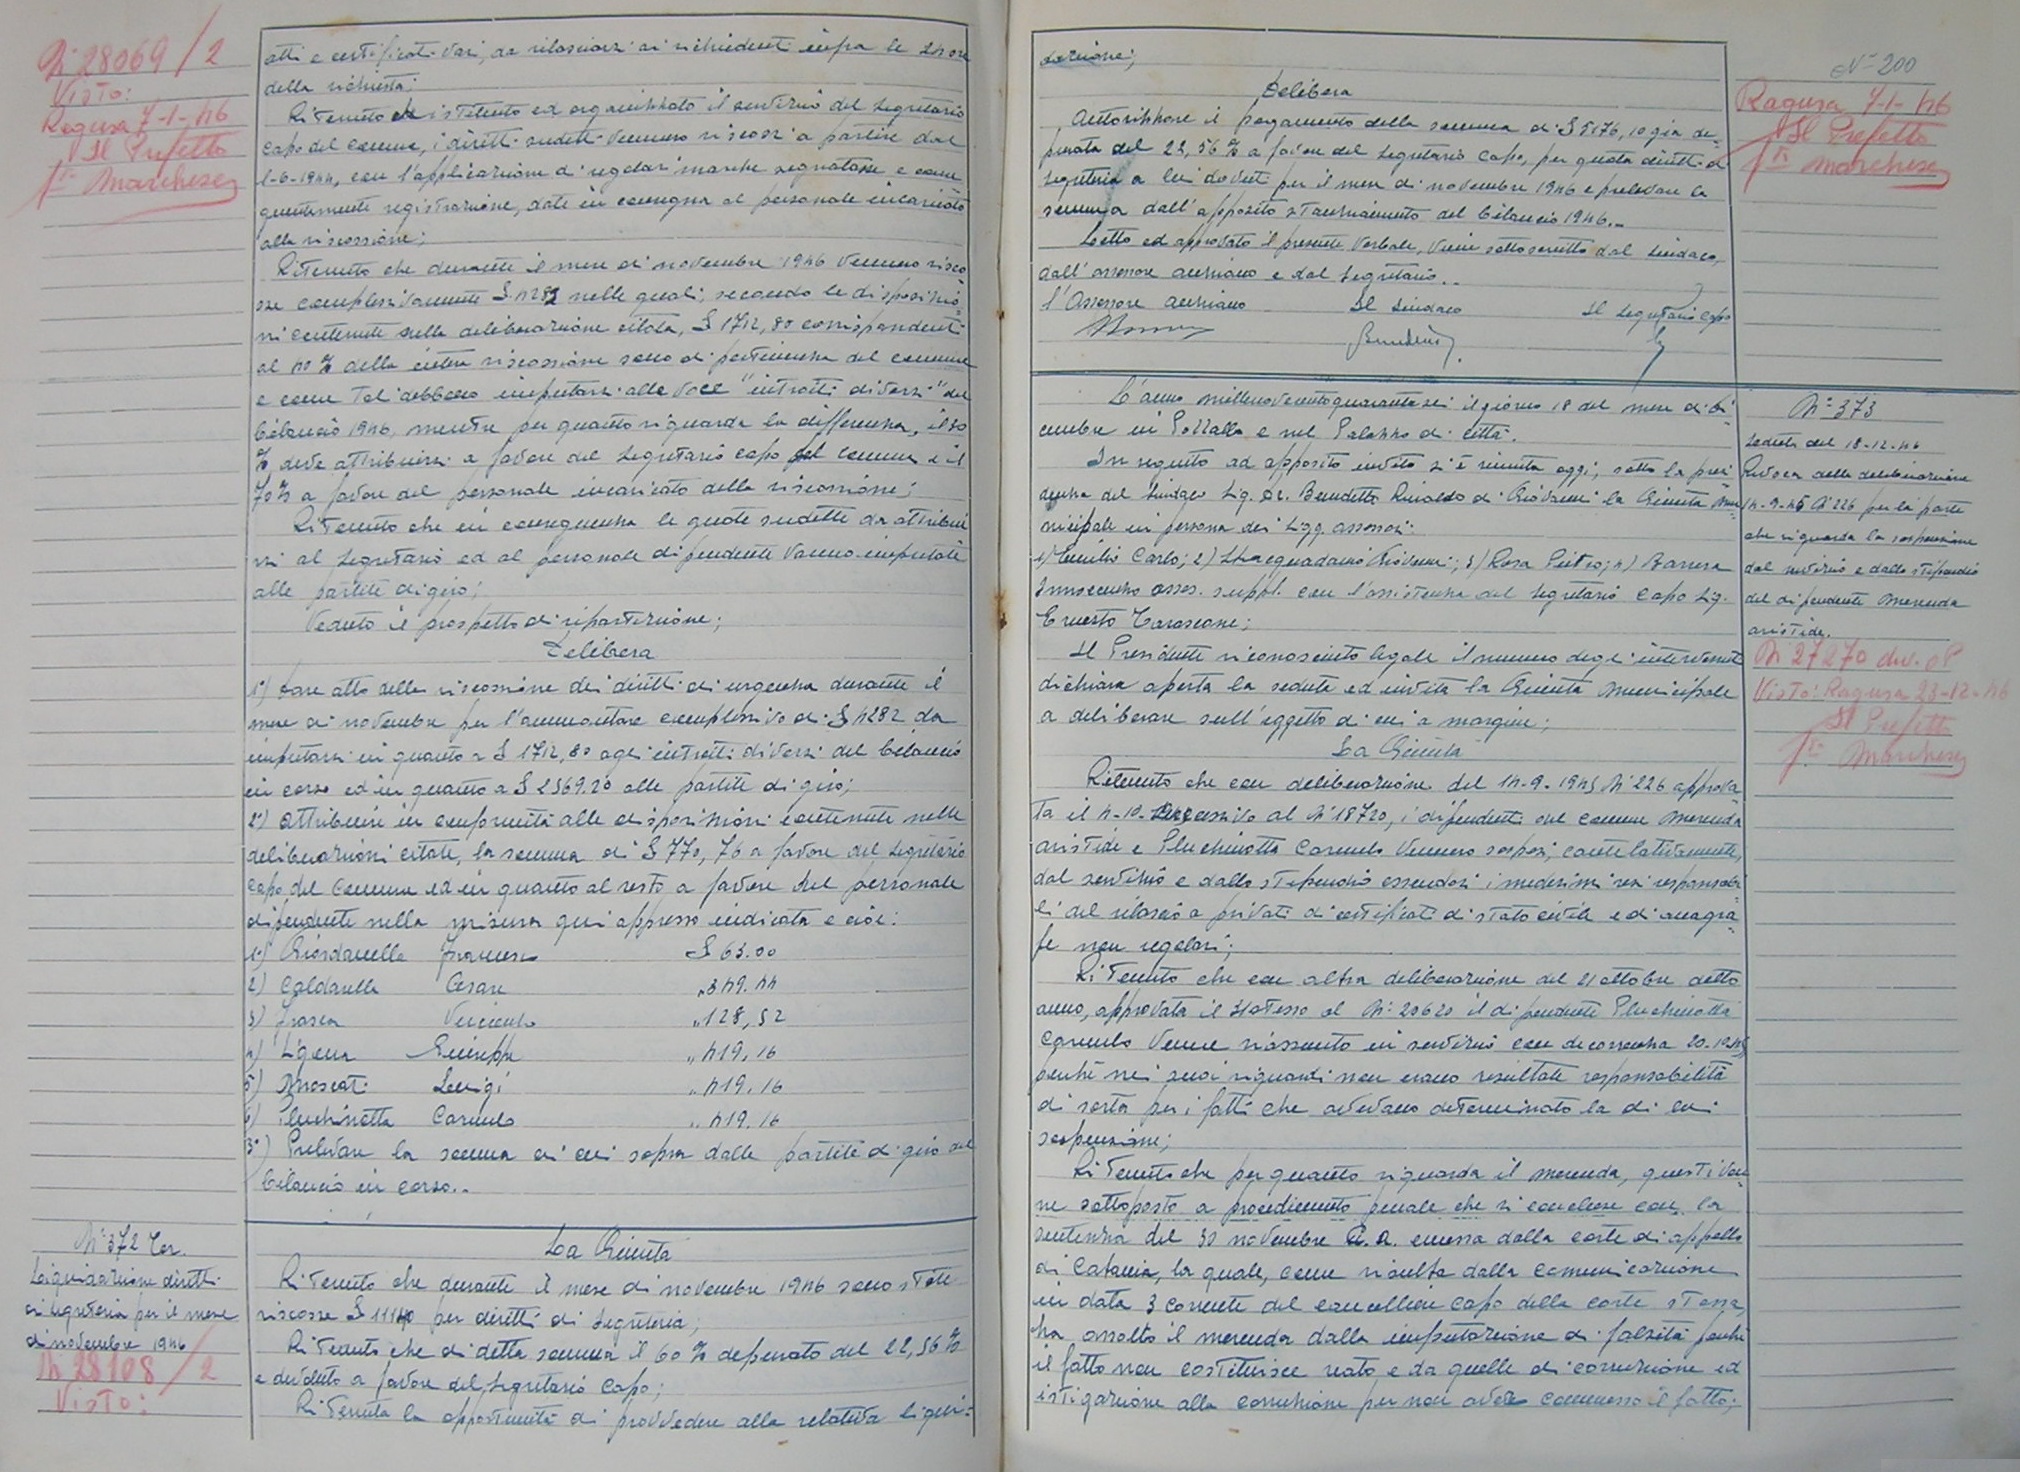 N° 28069/2
Visto:
Ragusa 7-1-46
Il Prefetto
fto Marchese
atti e certificati vari, da rilasciarsi ai richiedenti infra le 24 ore
della richiesta;
Ritenuto che istituito ed organizzato il servizio del Segretario
Capo del Comune, i diritti sudetti vennero riscossi a partire dal
1-6-1944, con l'applicazione di regolari marche segnatasse e conse
guentemente registrazione, date in consegna al personale incaricato
alla riscossione;
Ritenuto che durante il mese di novembre 1946 vennero risco
sse complessivamente £ 4282 nelle quali, secondo le disposizio
ni contenute nella deliberazione citata, £ 1712,80 corrispondenti
al 40% della intera riscossione sono di pertinenza del Comune
e come tali debbono imputarsi alla voce "introiti diversi" del
bilancio 1946, mentre per quanto riguarda la differenza, il 30
% deve attribuirsi a favore del Segretario capo del Comune e il
70% a favore del personale incaricato della riscossione;
Ritenuto che in conseguenza le quote sudette da attribui
rsi al Segretario ed al personale dipendente vanno imputate
alle partite di giro;
Veduto il prospetto di ripartizione;
Delibera
1°) Dare atto della riscossione dei diritti di urgenza durante il
mese di novembre per l'ammontare complessivo di £ 4282 da
imputarsi in quanto a £ 1712,80 agli introiti diversi del bilancio
in corso ed in quanto a £ 2569.20 alle partite di giro;
2°) Attribuire in conformità alle disposizioni contenute nelle
deliberazioni citate, la somma di £ 770,76 a favore del Segretario
Capo del Comune ed in quanto al resto a favore del personale
dipendente nella misura qui appresso indicata e cioè:
1°) Giordanella Francesco £ 63.00
2) Caldarella Cesare „ 349.44
3) Frasca Vincenzo „ 128,52
4) Ligama Giuseppe „ 419,16
5) Moscati Luigi „ 419.16
6) Pluchinotta Carmelo „ 419.16
3°) Prelevare la somma di cui sopra dalle partite di giro del
bilancio in corso..
N° 372 ter.
Liquidazione diritti
di segreteria per il mese
di novembre 1946
N 28108/2
Visto:
La Giunta
Ritenuto che durante il mese di novembre 1946 sono state
riscosse £ 11140 per diritti di Segreteria;
Ritenuto che di detta somma il 60% depurato del 22,56%
e devoluto a favore del Segretario Capo;
Ritenuta la opportunità di provvedere alla relativa liqui-
dazione;
Delibera
Autorizzare il pagamento della somma di £ 5176,10 già de-
purata del 22,56% a favore del Segretario Capo, per quota diritti di
segreteria a lui dovuti per il mese di novembre 1946 e prelevare la
somma dall'apposito stanziamento del bilancio 1946..
Letto ed approvato il presente verbale, viene sottoscritto dal Sindaco,
dall'assessore anziano e dal Segretario..
L'Assessore anziano Il Sindaco Il Segretario Capo
N° 200
Ragusa 7-1-46
Il Prefetto
fto Marchese
L'anno millenovecentoquarantasei il giorno 18 del mese di di-
cembre in Pozzallo e nel Palazzo di città.
In seguito ad apposito invito si è riunita oggi, sotto la presi
denza del Sindaco Sig. Dr. Benedetto Rinaldo di Giovanni la Giunta Mu-
nicipale in persona dei Sigg. assessori:
1) Emilio Carlo; 2) Giovanni; 3) Rosa Pietro; 4) Barrera
Innocenzo asses. suppl. con l'assistenza del Segretario Capo Sig.
Ernesto Tarascone;
Il Presidente riconosciuto legale il numero degli intervenuti
dichiara aperta la seduta ed invita la Giunta Municipale
a deliberare sull'oggetto di cui a margine;
N° 373
Seduta del 18-12-46
Revoca della deliberazione
14-9-45 N° 226 per la parte
che riguarda la sospensione
dal servizio e dallo stipendio
del dipendente Merenda
Aristide.
N° 27270 div. 2ª
Visto: Ragusa 23-12-46
Il Prefetto
fto Marchese
La Giunta
Ritenuto che con deliberazione del 14-9-1945 N° 226 approva-
ta il 4-10-successivo al N° 18720, i dipendenti del comune Merenda
Aristide e Pluchinotta Carmelo vennero sospesi, cautelativamente,
dal servizio e dallo stipendio essendosi i medesimi resi responsabi
li del rilascio a privati di certificati di stato civile e di anagra-
fe non regolari;
Ritenuto che con altra deliberazione del 21 ottobre detto
anno, approvata il 31 stesso al N° 20620 il dipendente Pluchinotta
Carmelo venne riassunto in servizio con decorrenza 20-10-45
perché nei suoi riguardi non erano risultate responsabilità
di sorta per i fatti che avevano determinato la di cui
sospensione;
Ritenuto che per quanto riguarda il Merenda, questi ven-
ne sottoposto a procedimento penale che si concluse con la
sentenza del 30 novembre u.s. emessa dalla corte di appello
di Catania, la quale, come risulta dalla comunicazione
in data 3 corrente del cancelliere capo della corte stessa,
ha assolto il Merenda dalla imputazione di falsità perché
il fatto non costituisce reato e da quelle di corruzione ed
istigazione alla corruzione per non avere commesso il fatto;